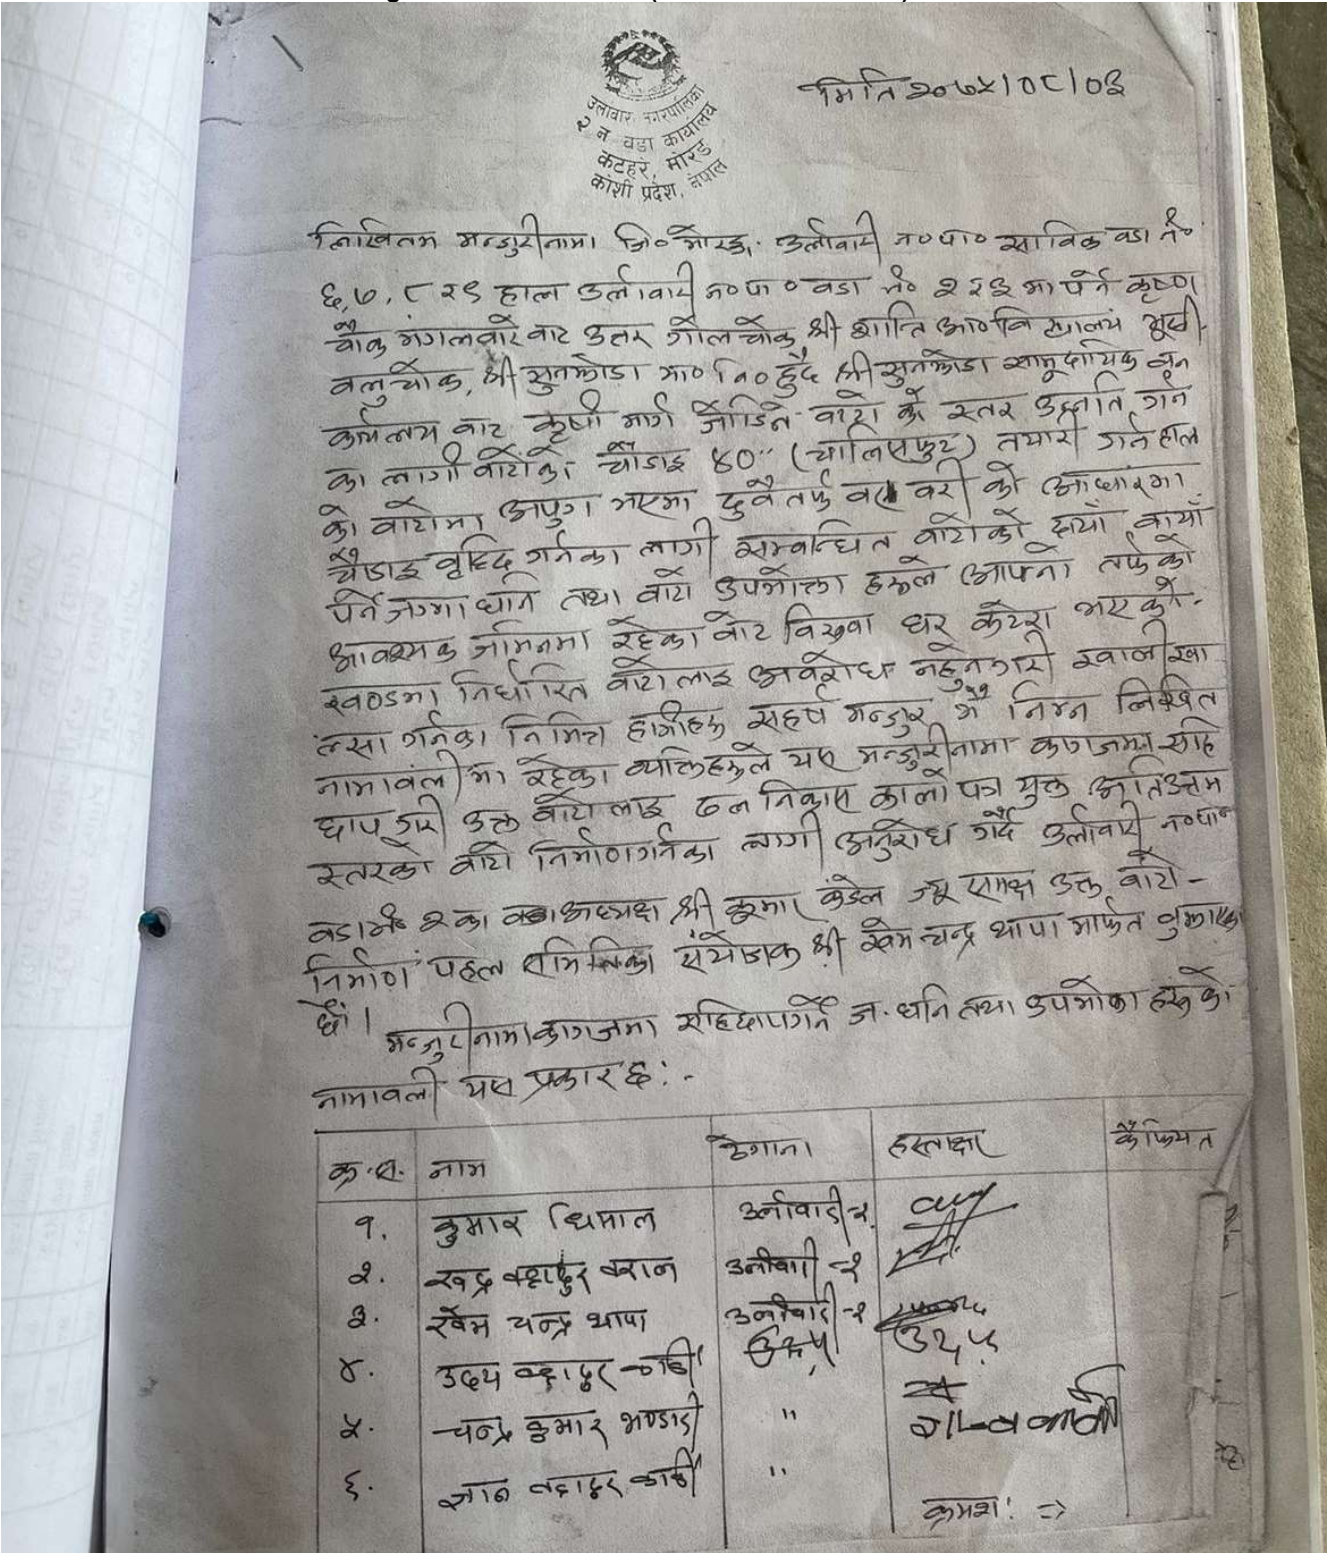 मिति २०७५।०८।०३
उर्लाबारी नगरपालिका
२ न वडा कार्यालय
कटहरे, मोरङ
कोशी प्रदेश, नेपाल
लिखितम मन्जुरीनामा जि० मोरङ उर्लाबारी न०पा० साविक वडा नं०
६,७,८ र ९ हाल उर्लाबारी न०पा० वडा नं० २ र ३ मा पर्ने कृष्ण
चौक मंगलवारे बाट उत्तर गोलचोक श्री शान्ति आ० विद्यालय
वलुचोक, श्री सुनझोडा मा० वि० हुदै श्री सुनझोडा सामुदायिक वन
कार्यलय बाट कृषी मार्ग जोडिने बाटो को स्तर उन्नति गर्न
का लागी बाटोको चौडाइ ४०'' (चालिसफुट) तयारी गर्न हाल
को बाटोमा अपुग भएमा दुवै तर्फ बराबरी को आधारमा
चौडाइ वृद्दि गर्नका लागी सम्बन्धित बाटोको दायाँ बायाँ
पर्ने जग्गा धनि तथा बाटो उपभोक्ता हरूले आफ्नो तर्फको
आवश्यक जमिनमा रहेका बोट बिरुवा घर कटेरा भएको
खण्डमा निर्धारित बाटो लाइ अवरोध नहुनेगरी खाली
गर्नका निमित्त हामीहरू सहर्ष मन्जुर भै निम्न लिखित
नामावली मा रहेका व्यक्तिहरूले यस मन्जुरीनामा कागजमा सहि
छाप गरी उक्त बाटो लाइ ढल निकास कालो पत्र युक्त अतिउत्तम
स्तरको बाटो निर्माण गर्नका लागी अनुरोध गर्दै उर्लाबारी न०पा०
वडा नं० २ का वडा अध्यक्ष श्री कुमार कंडेल ज्यू समक्ष उक्त बाटो -
निर्माण पहल समितिका संयोजक श्री खेम चन्द्र थापा मार्फत बुझाएका
छौं।
मन्जुरीनामा कागजमा सहिछापगर्ने ज. धनि तथा उपभोक्ता हरू को
नामावली यस प्रकार छ: -
क्र.स. नाम ठेगाना हस्ताक्षर कैफियत
१. कुमार धिमाल उर्लाबारी-२
२. बहादुर उर्लाबारी-२
३. खेम चन्द्र थापा उर्लाबारी-२
४. उदय बहादुर कार्की उदय
५. चन्द्र कुमार भण्डारी "
६. ज्ञान बहादुर कार्की "
क्रमश: =>